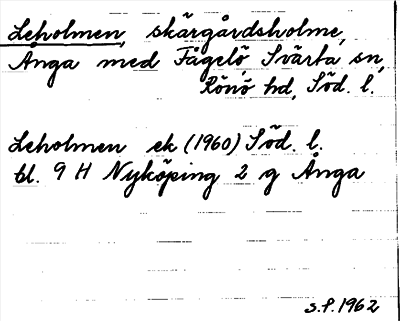 Leholmen, skärgårdsholme,
Ånga med Fågelö, Svärta sn,
Rönö hd, Söd. l.
Leholmen ek (1960) Söd. l.
bl. 9 H Nyköping 2 g Ånga
s.P. 1962